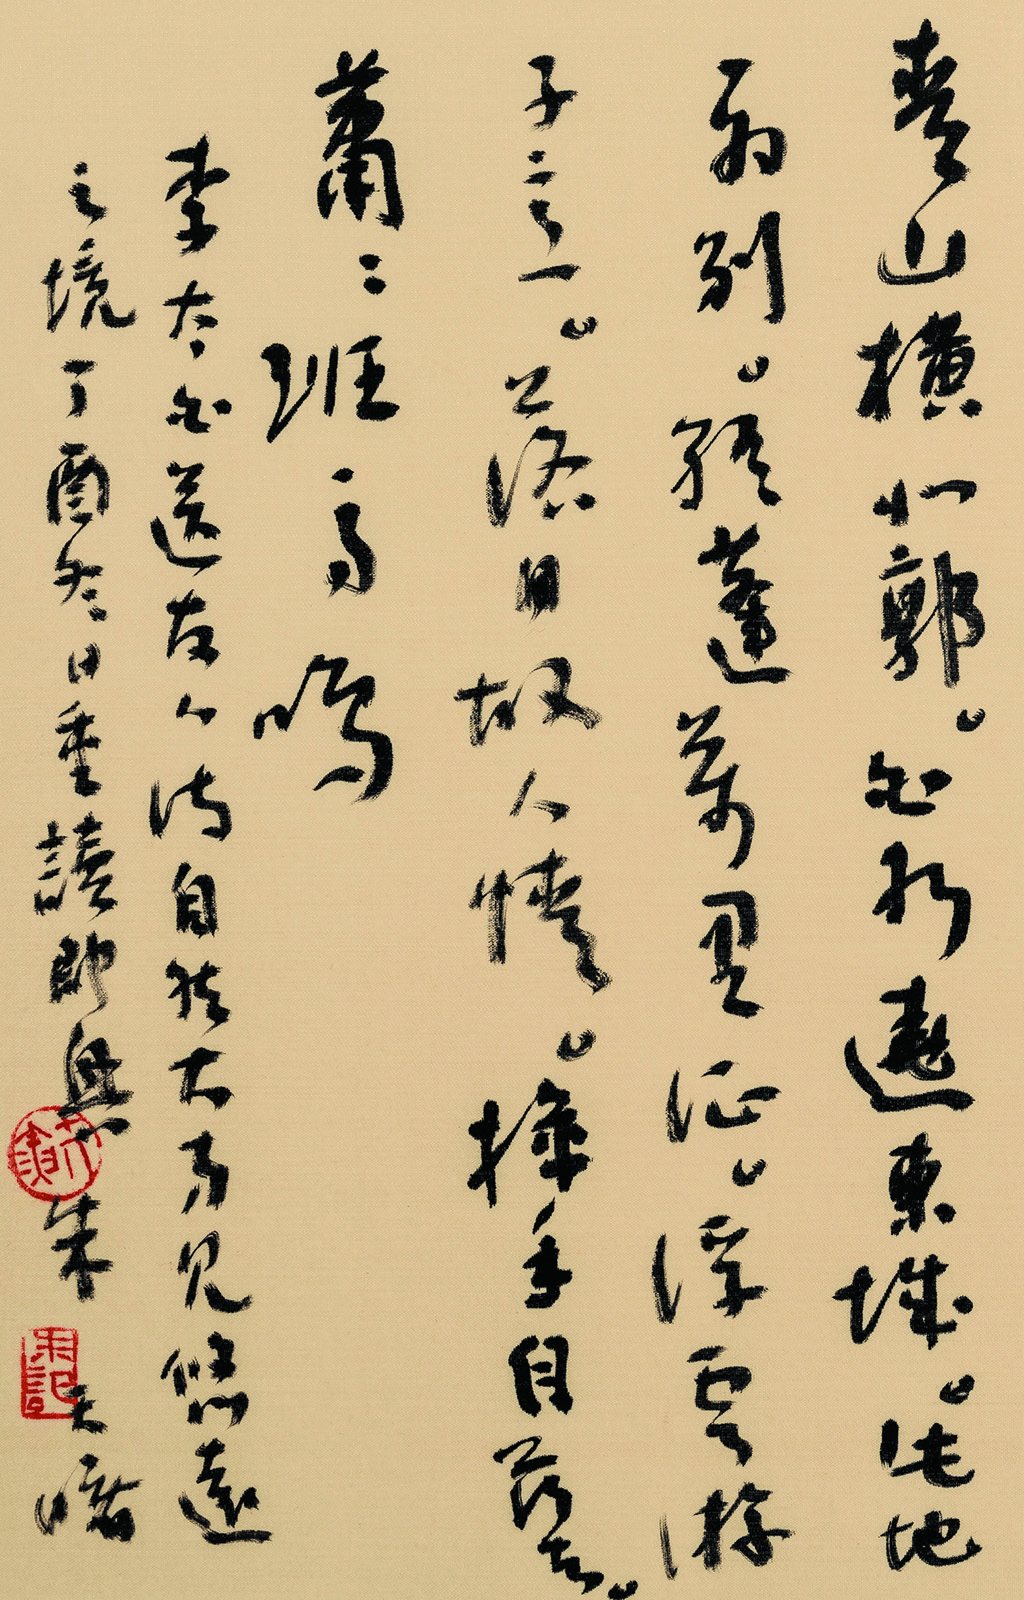 青山橫北郭。白水遶東城。此地
一為別。孤蓬萬里征。浮雲游
子意。落日故人情。揮手自茲去。
蕭〻班馬鳴
李太白送友人詩自然大方見悠遠
之境丁酉冬日重讀即興朱天曙
朱記